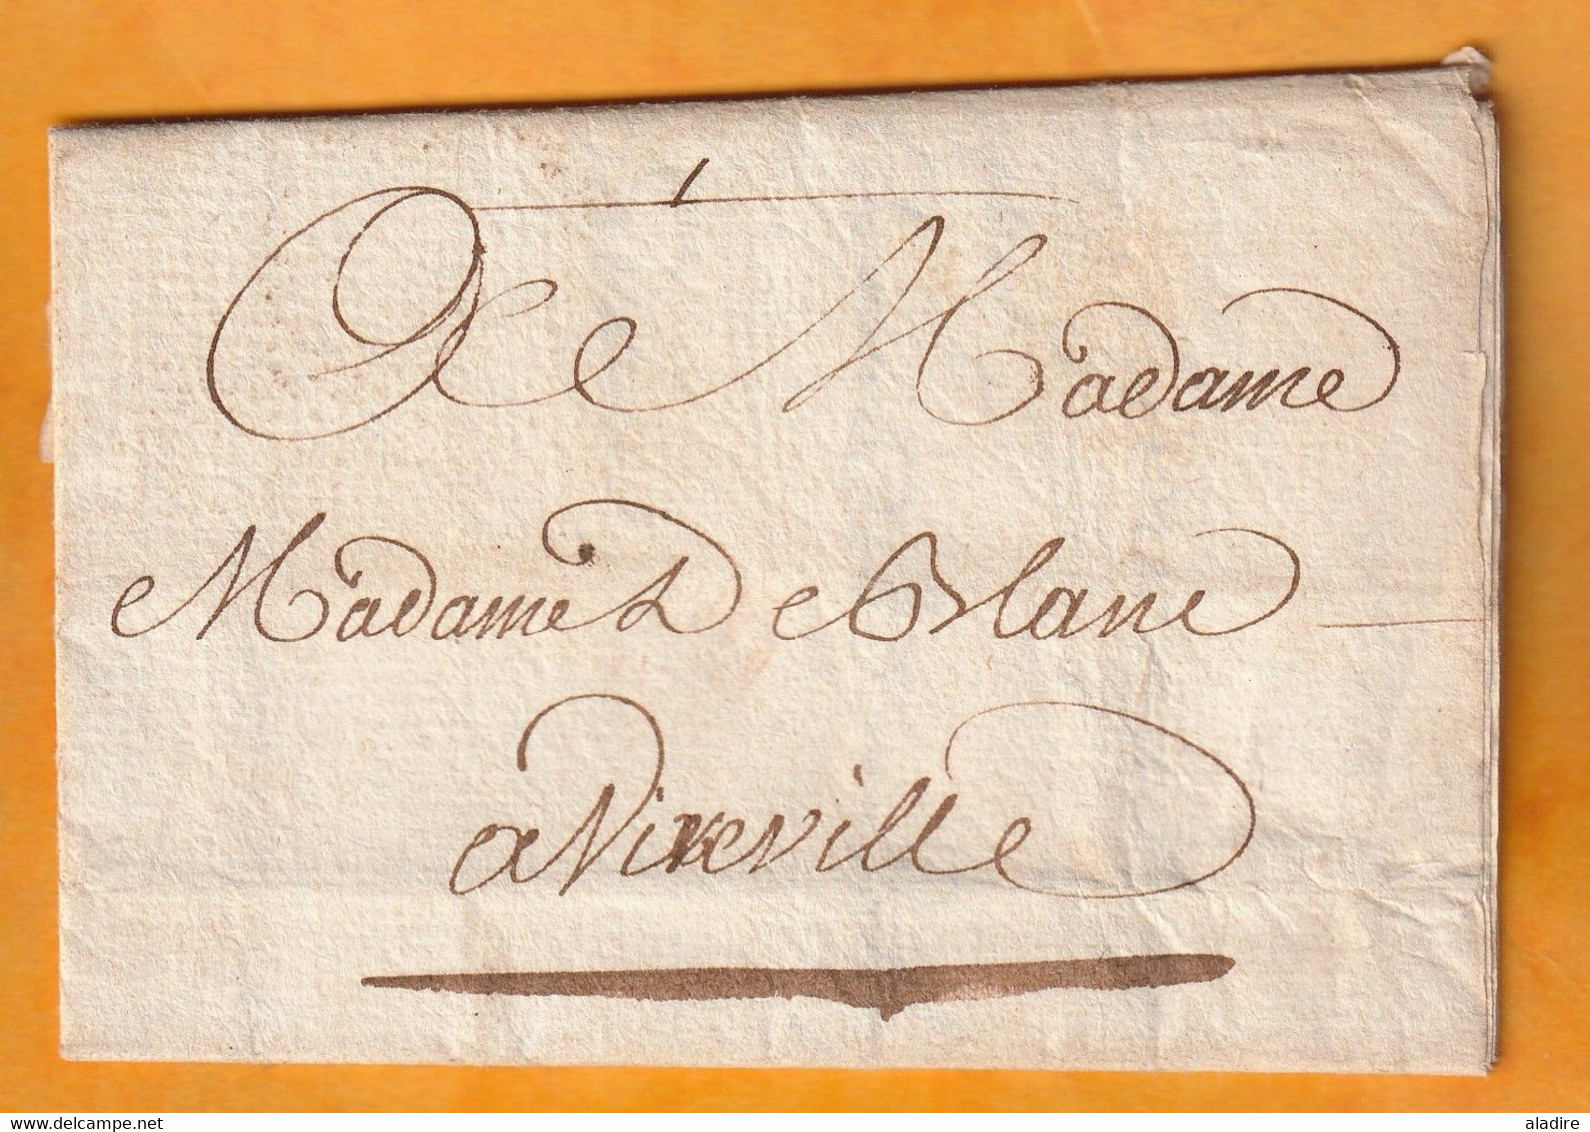 A Madame
Madame De Blanc
a Vireville
www.delcampe.net
aladire